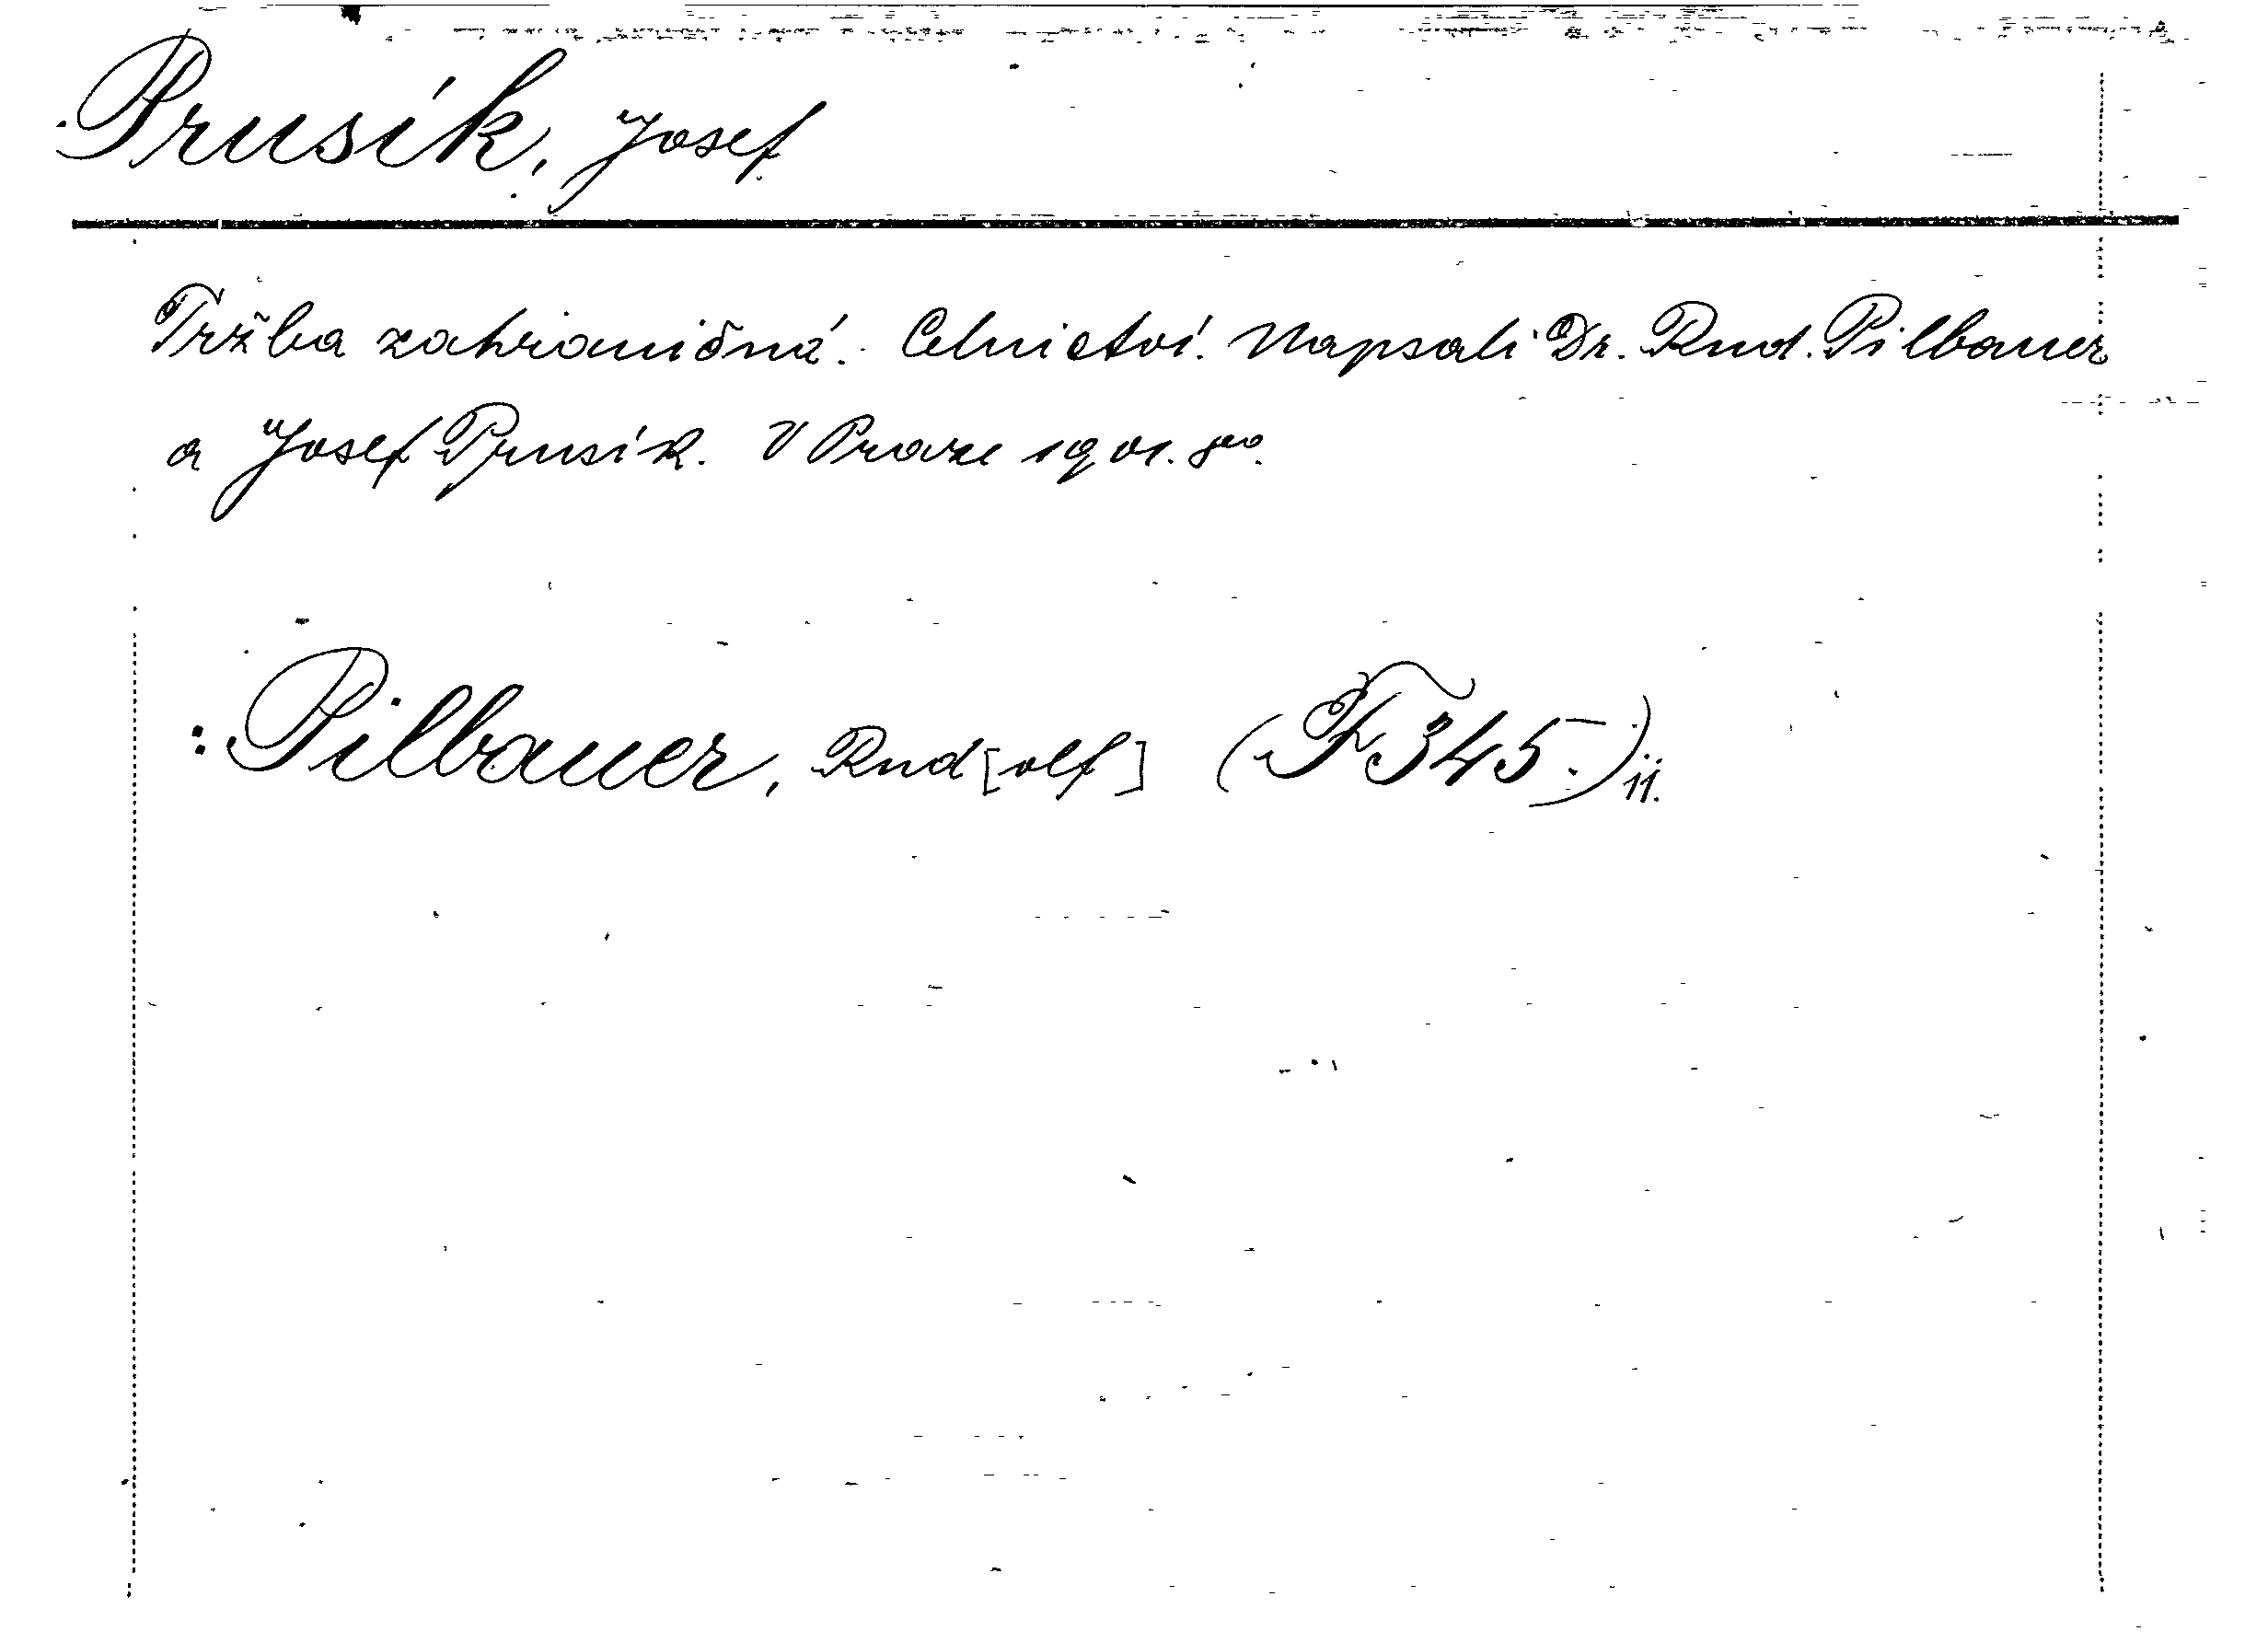 Prusík, Josef
Tržba zahraničná. Celnictví. Napsali Dr. Rud. Pilbauer
a Josef Prusík. V Praze 1901. 8vo.
: Pilbauer, Rud[olf] (F 345.) ii.